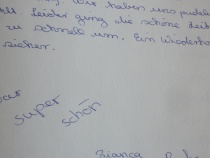 wir haben uns pudel
Leider ging die schöne Zeit
zu schnell um. Ein Wiederho
sicher.
war
super
schön
Bianca